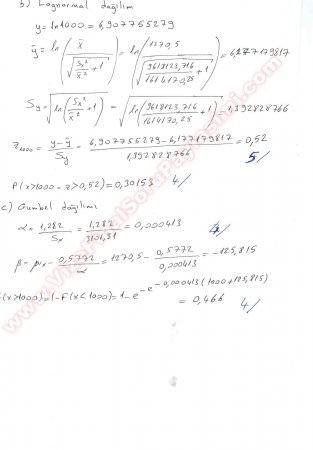 b) Lognormal dağılım
y = ln1000 = 6,907755279
ȳ = ln( x̄ / √(Sx²/x̄² + 1) ) = ln( 1270,5 / √(9618123,716/1614170,25 + 1) ) = 6,177179817
Sy = √(ln(Sx²/x̄² + 1)) = √(ln(9618123,716/1614170,25 + 1)) = 1,392828766
z1000 = (y - ȳ)/Sy = (6,907755279 - 6,177179817)/1,392828766 = 0,52
5/
P(x>1000 → z>0,52) = 0,30153 4/
c) Gumbel dağılımı
α = 1,282/Sx = 1,282/3101,31 = 0,000413 4/
β = μx - 0,5772/α = 1270,5 - 0,5772/0,000413 = -125,815
(x>1000) = 1-F(x<1000) = 1-e^-e^-0,000413(1000+125,815) = 0,466 4/